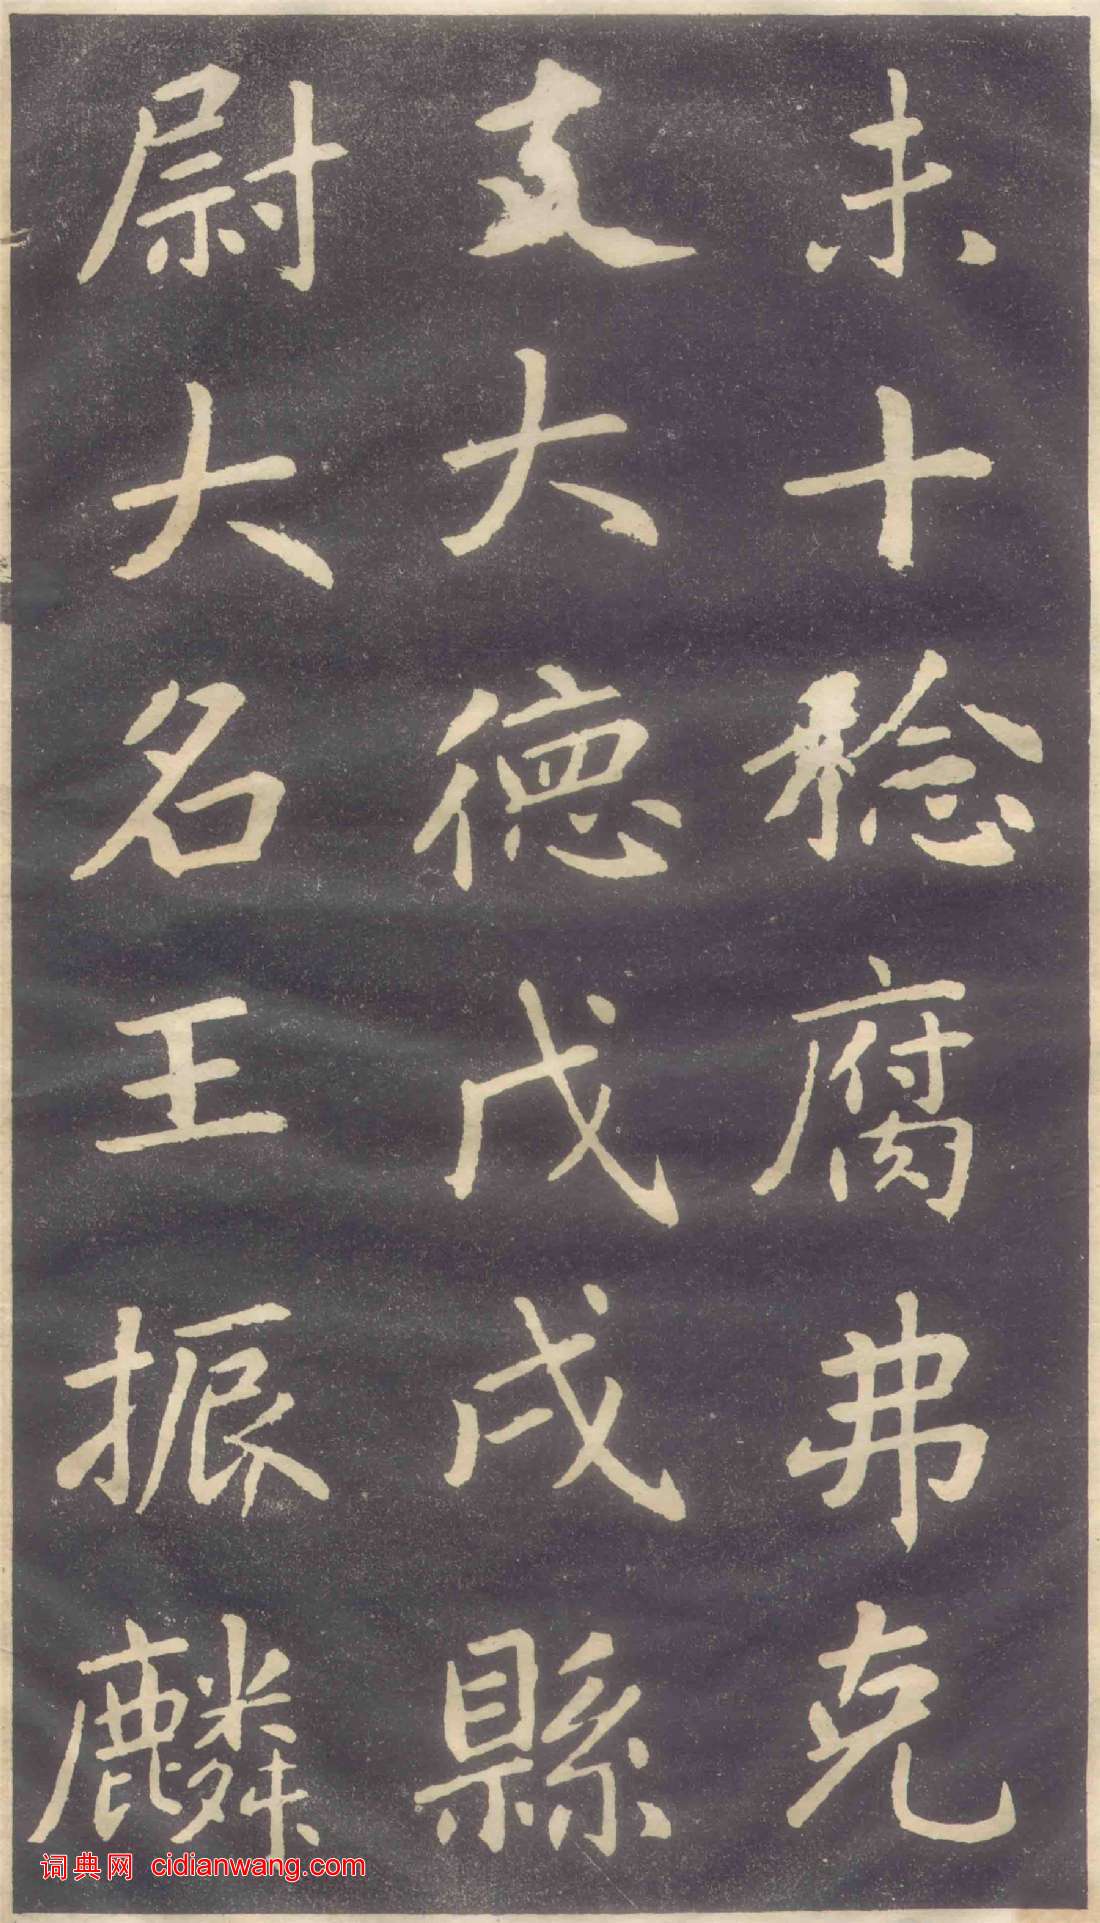 未十稔腐弗克
支大德戊戌縣
尉大名王振麟
词典网 cidianwang.com